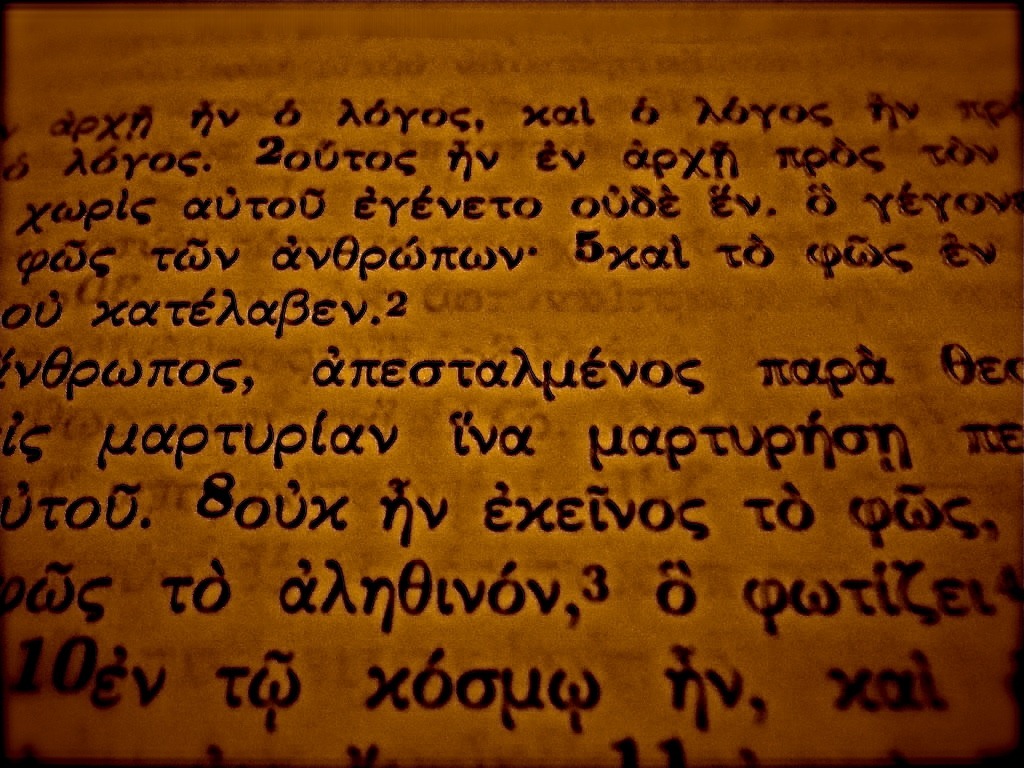 ἀρχῇ ἦν ὁ λόγος, καὶ ὁ λόγος ἦν
ὁ λόγος. 2οὗτος ἦν ἐν ἀρχῇ πρὸς τὸν
χωρὶς αὐτοῦ ἐγένετο οὐδὲ ἕν. ὃ γέγονε
φῶς τῶν ἀνθρώπων· 5καὶ τὸ φῶς ἐν
οὐ κατέλαβεν.2
ἄνθρωπος, ἀπεσταλμένος παρὰ θεο
εἰς μαρτυρίαν ἵνα μαρτυρήσῃ πε
αὐτοῦ. 8οὐκ ἦν ἐκεῖνος τὸ φῶς,
φῶς τὸ ἀληθινόν,3 ὃ φωτίζει4
10ἐν τῷ κόσμῳ ἦν, καὶ
11